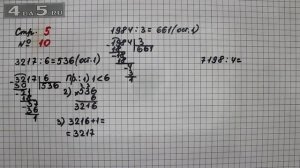 4 на 5.ru
Стр. 5
№ 10
3217 : 6 = 536 (ост. 1)
3217 | 6
30 | 536
21
18
37
36
1
Пр.: 1) 1 < 6
2) 536
6
3216
3) 3216 + 1 =
= 3217
1984 : 3 = 661 (ост. 1)
1984 | 3
18 | 661
18
18
4
3
1
7198 : 4 =